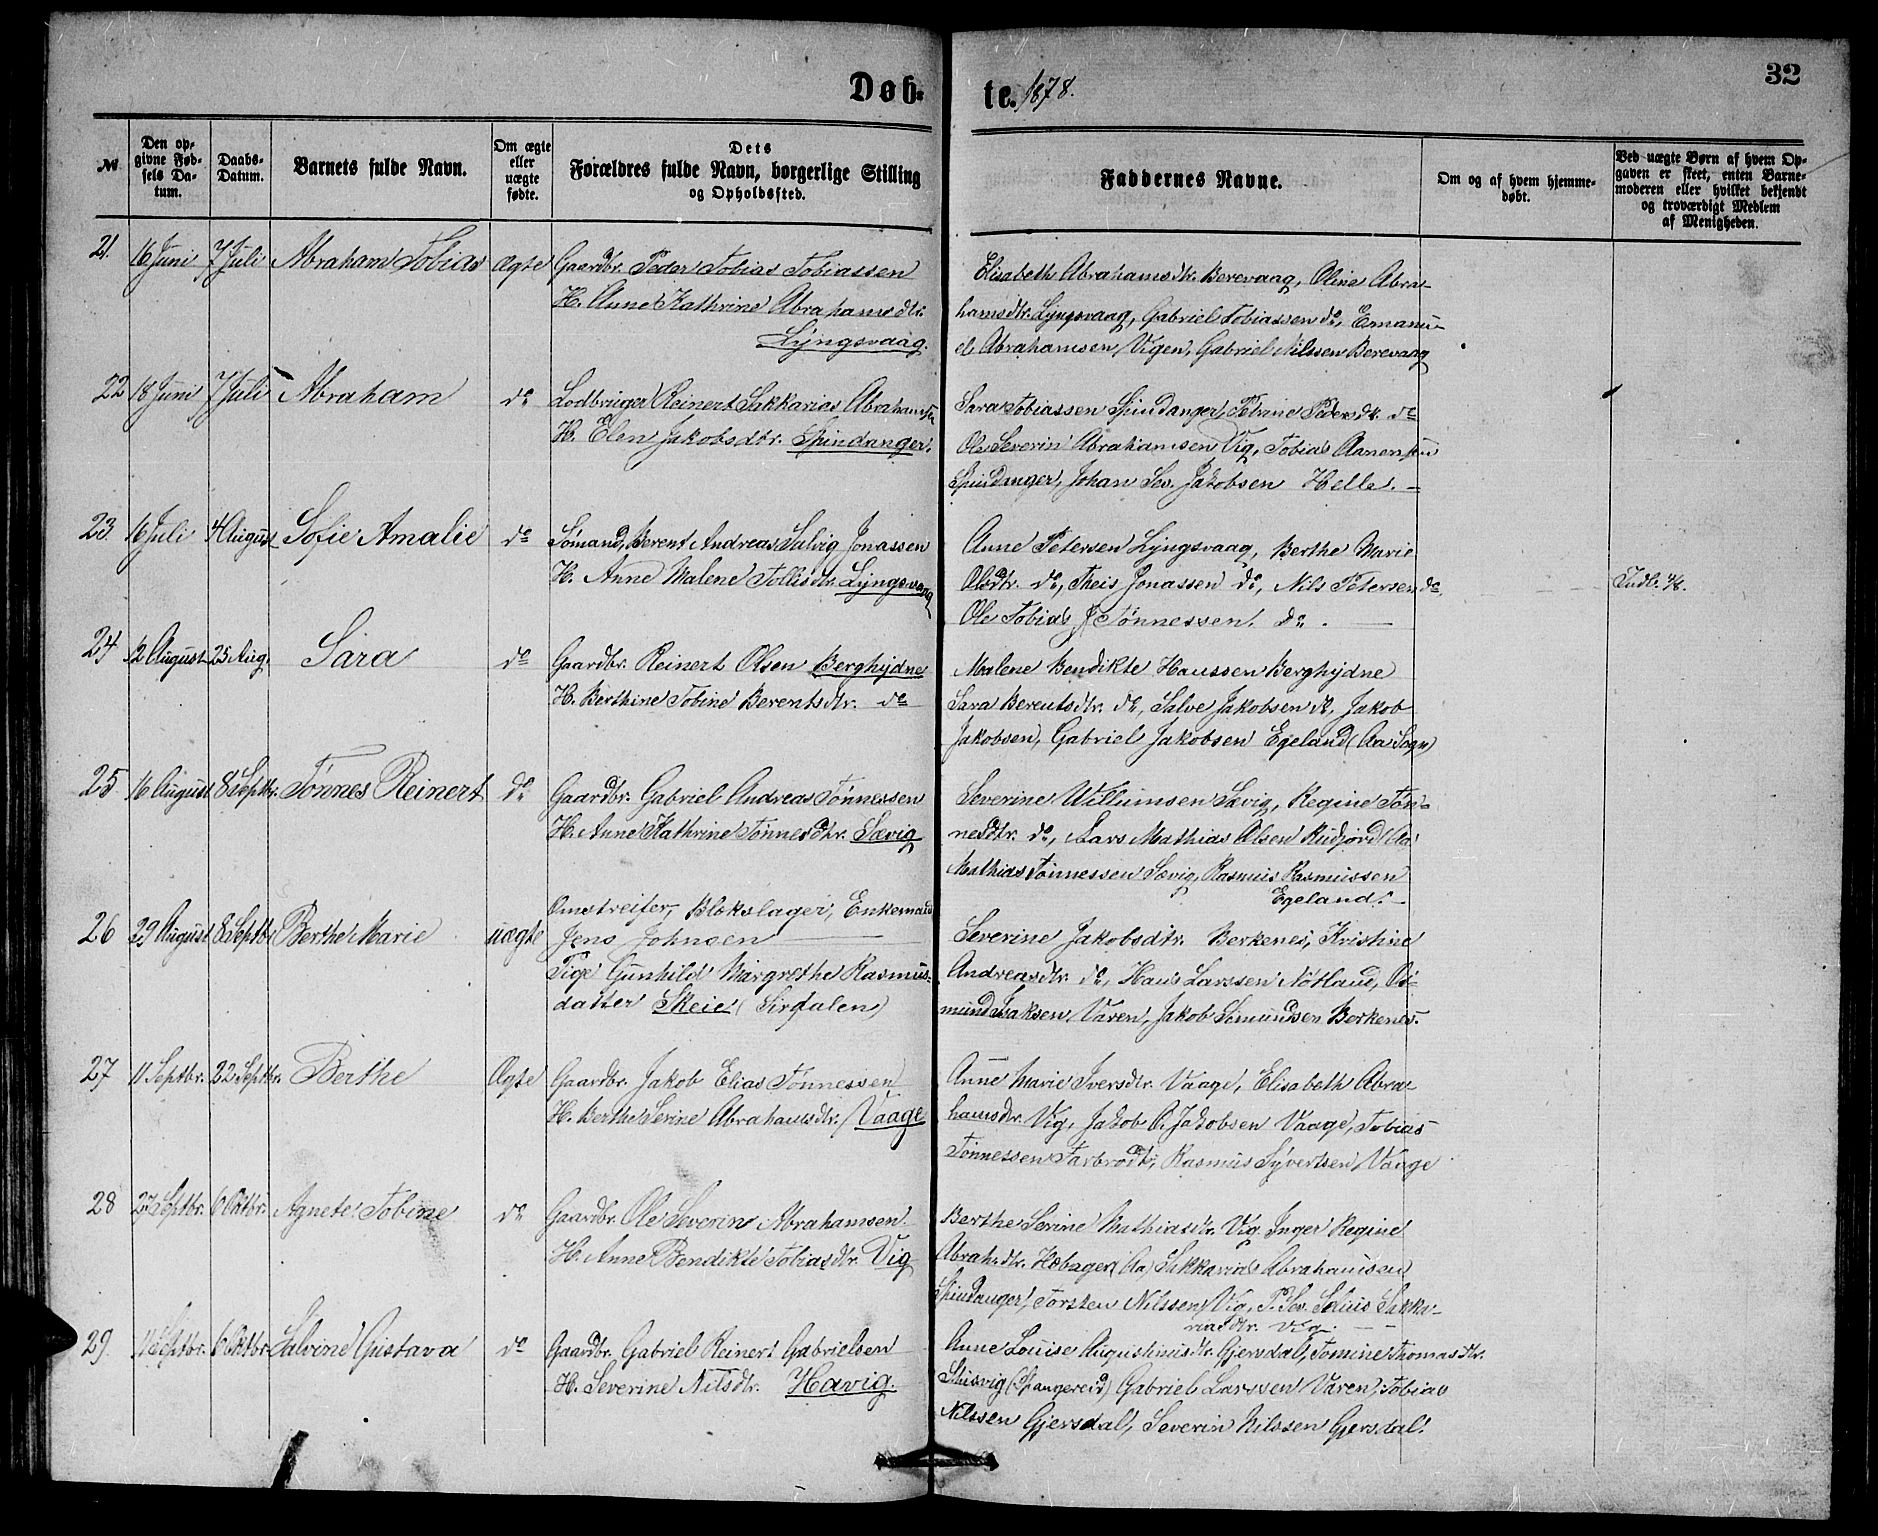 Døb-
te. 1878.
32
№
Den op-
givne Fød-
sels Da-
tum.
Daabs-
Datum.
Barnets fulde Navn.
Om ægte
eller
uægte
fødte.
Dets
Forældres fulde Navn, borgerlige Stilling
og Opholdssted.
Faddernes Navne.
Om og af hvem hjemme-
døbt.
Ved uægte Børn af hvem Op-
gaven er skeet, enten Barne-
moderen eller hvilket bekjendt
og troværdigt Medlem
af Menigheden.
21. 16 Juni 7 Juli Abraham Tobias Ægte Gaardbr. Peder Tobias Tobiassen
H. Anne Kathrine Abrahamsdtr.
Lyngsvaag.
Elisabeth Abrahamsdtr. Berevaag, Oline Abra-
hamsdtr. Lyngsvaag, Gabriel Tobiassen do, Emanu-
el Abrahamsen Vigen, Gabriel Nilssen Berevaag
22 18 Juni 7 Juli Abraham do Lodbruger Reinert Sakkarias Abrahamsen
H. Elen Jakobsdtr. Spindanger.
Sara Tobiassen Spindanger, Petrine Pedersdtr. do
Ole Severin Abrahamsen Vig, Tobias Aanensen
Spindanger, Johan Sev. Jakobsen Helle. –
23. 16 Juli 4 August Sofie Amalie do Sømand, Berent Andreas Salvig Jonassen
H. Anne Malene Tollisdtr. Lyngsvaag
Anne Petersen Lyngsvaag, Berthe Marie
Olsdtr. do, Theis Jonassen do, Nils Petersen do
Ole Tobias Tønnessen. do. –
Indl. 4/8.
24 2 August 25 Aug. Sara do Gaardbr. Reinert Olsen Berghydne
H. Berthine Tobine Berentsdtr. do
Malene Bendikte Hanssen Berghydne
Sara Berentsdtr. do, Salve Jakobsen do, Jakob
Jakobsen, Gabriel Jakobsen Egeland (Aa Sogn)
25 16 August 8 Septbr. Tønnes Reinert do Gaardbr. Gabriel Andreas Tønnessen
H. Anne Kathrine Tønnesdtr. Sævig
Severine Willumsen Sævig, Regine Tøn-
nesdtr. do, Lars Mathias Olsen Rudjord (Aa)
Mathias Tønnessen Sævig, Rasmus Rasmussen
Egeland. –
26 29 August 8 Septbr. Berthe Marie uægte Omstreifer, Blokslager, Enkemand
Jens Johnsen
Pige Gunhild Margrethe Rasmus-
datter Skeie (Sirdalen)
Severine Jakobsdtr. Berkenes, Kristine
Andreasdtr. do, Hans Larssen Nøtland, Os-
mund Isaksen Varen, Jakob Sømundsen Berkenes.
27 11 Septbr. 22 Septbr. Berthe Ægte Gaardbr. Jakob Elias Tønnessen
H. Berthe Serine Abrahamsdtr. Vaage
Anne Marie Iversdtr. Vaage, Elisabeth Abra-
hamsdtr. Vig, Jakob A. Jakobsen Vaage, Tobias
Tønnessen Farbrodt, Rasmus Syvertsen Vaage
28 27 Septbr. 6 Oktbr. Agnete Tobine do Gaardbr. Ole Severin Abrahamsen
H. Anne Bendikte Tobiasdtr. Vig
Berthe Serine Mathiasdtr. Vig, Inger Regine
Abrah.dtr. Hæbager (Aa) Sakkarias Abrahamsen
Spindanger, Torsten Nilssen Vig, P. Sev. Sakka-
riasdtr. Vig. –
29. 11 Septbr. 6 Oktbr. Salvine Gustava do Gaardbr. Gabriel Reinert Gabrielsen
H. Severine Nilsdtr. Havig.
Anne Louise Augustinusdtr. Gjersdal, Tomine Thomasdtr.
(Spangereid) Gabriel Larssen Varen, Tobias
Nilssen Gjersdal, Severin Nilssen Gjersdal.